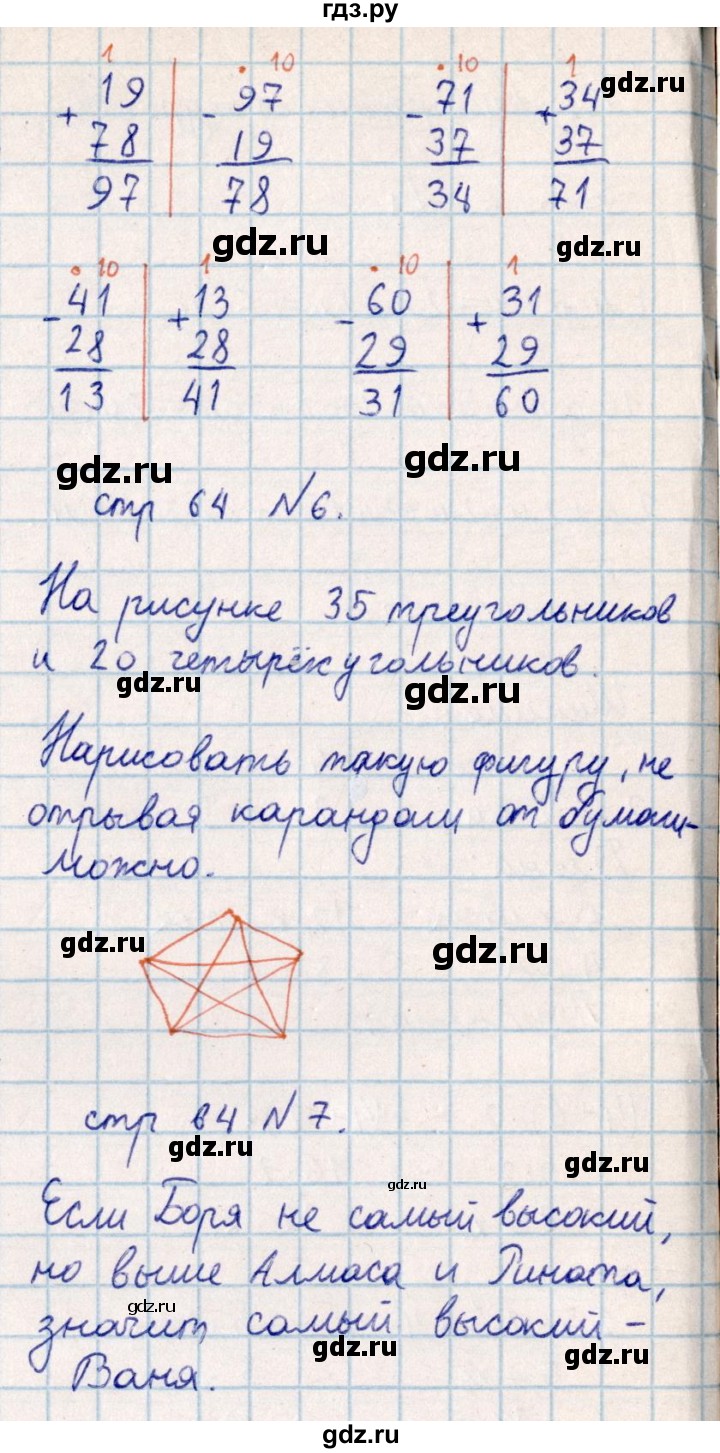 гдз.ру
1 10 10 1
+ 19 - 97 - 71 + 34
gdz.ru
78 19 37 37
97 78 34 71
gdz.ru gdz.ru
10 1 10 1
- 41 + 13 - 60 + 31
28 28 29 29
13 41 31 60
gdz.ru gdz.ru
стр 64 №6.
На рисунке 35 треугольников
и 20 четырёхугольников.
gdz.ru gdz.ru
Нарисовать такую фигуру, не
отрывая карандаш от бумаги-
можно.
gdz.ru gdz.ru
стр 64 №7.
gdz.ru gdz.ru
gdz.ru
Если Боря не самый высокий,
но выше Алмаса и Рината,
gdz.ru
значит самый высокий -
gdz.ru gdz.ru
Ваня.
гдз.ру